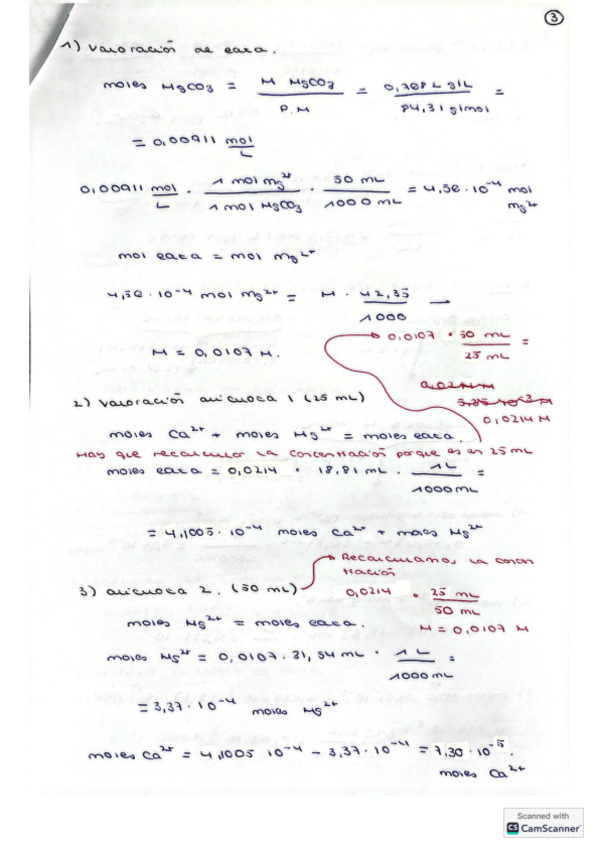 3
1) Valoración de EATA.
moles MgCO3 = M MgCO3 / P.M = 0,7682 g/L / 84,31 g/mol =
= 0,00911 mol/L
0,00911 mol/L · 1 mol Mg²⁺ / 1 mol MgCO3 · 50 mL / 1000 mL = 4,56 · 10⁻⁴ mol Mg²⁺
mol EATA = mol Mg²⁺
4,56 · 10⁻⁴ mol Mg²⁺ = M · 42,35 / 1000 →
M = 0,0107 M.
0,0107 · 50 mL / 25 mL =
0,0214 M
2) Valoración alícuota 1 (25 mL)
moles Ca²⁺ + moles Mg²⁺ = moles EATA.
Hay que recalcular la concentración porque es en 25 mL
moles EATA = 0,0214 · 18,81 mL · 1L / 1000 mL =
= 4,1005 · 10⁻⁴ moles Ca²⁺ + moles Mg²⁺
Recalculamos la concentración
3) alícuota 2. (50 mL)
0,0214 · 25 mL / 50 mL
M = 0,0107 M
moles Mg²⁺ = moles EATA.
moles Mg²⁺ = 0,0107 · 31,54 mL · 1L / 1000 mL =
= 3,37 · 10⁻⁴ moles Mg²⁺
moles Ca²⁺ = 4,1005 · 10⁻⁴ − 3,37 · 10⁻⁴ = 7,30 · 10⁻⁵.
moles Ca²⁺
Scanned with
CS CamScanner